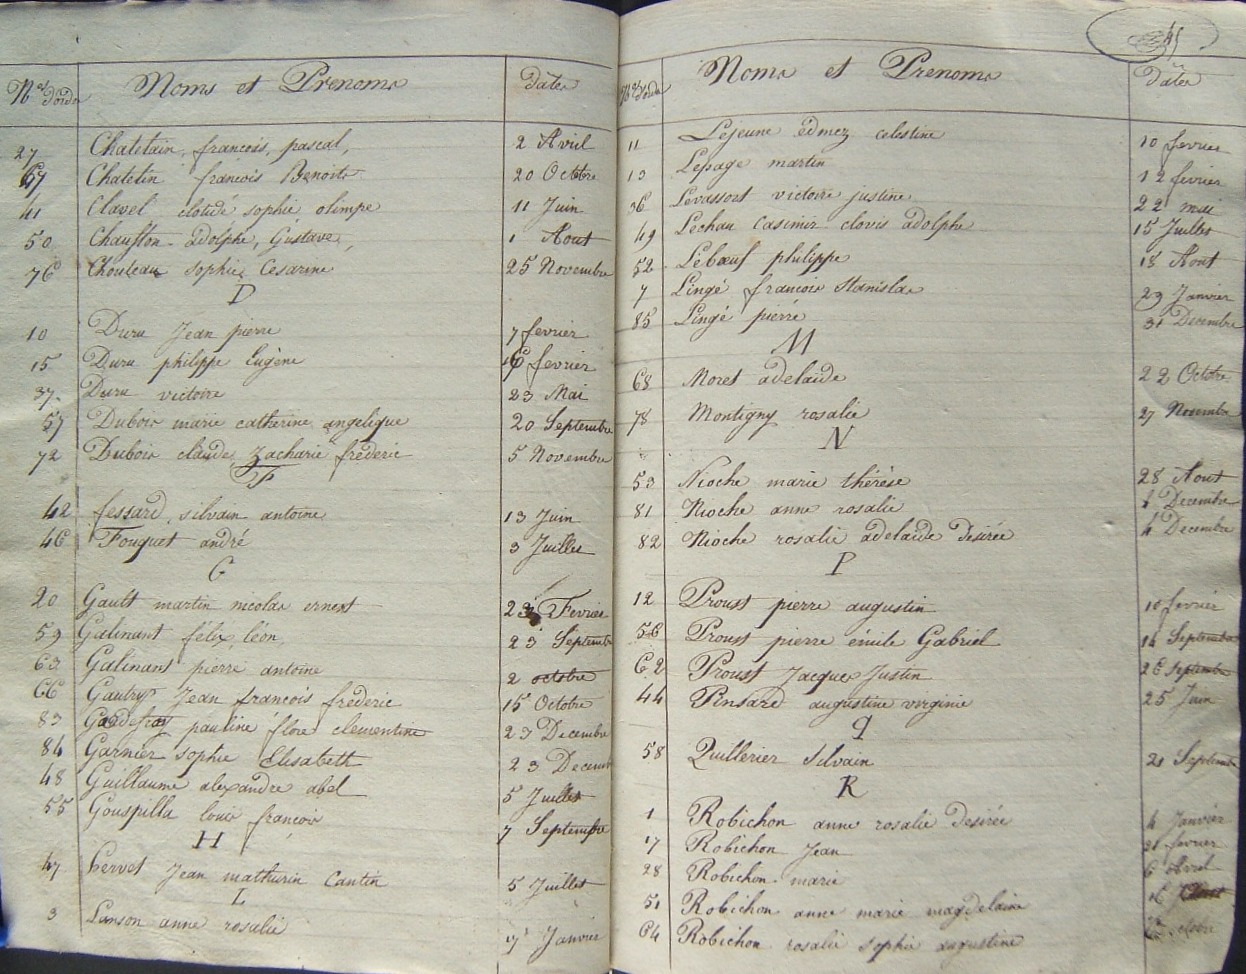 Nos d'ordre Noms et Prenoms dates
27 Chatelain francois, pascal, 2 Avril
67 Chatelin francois Benoit 20 Octbre
41 Clavel cloude sophie olimpe 11 Juin
50 Chauflon adolphe, Gustave, 1 Aout
76 Chouleau sophie Cesarine 25 Novembre
D
10 Duru Jean pierre 7 fevrier
15 Duru philippe Eugène 16 fevrier
37 Duru victoire 23 Mai
57 Dubois marie catherine angelique 20 Septembre
72 Dubois claude Zacharie fréderic 5 Novembre
F
42 fessard silvain antoine 13 Juin
46 Fouquet andré 3 Juillet
G
20 Gault martin nicolas ernest 23 Fevrier
59 Galinant félix, léon 23 Septembre
63 Galinant pierre antoine 2 octobre
66 Gautry Jean francois fréderic 15 Octobre
83 pauline flore clementine 23 Decembre
84 Garnier sophie Elisabeth 23 Decemb
48 Guillaume alexandre abel 5 Juillet
55 Gouspilla louis francois 7 Septembre
H
47 hervet Jean mathurin Cantin 5 Juillet
L
3 Lanson anne rosalie 7 Janvier
45
Nos d'ordre Noms et Prenoms dates
11 Lejeune edmez celestine 10 fevrier
13 Lepage martin 12 fevrier
36 Levassort victoire justine 22 mai
49 Lechau Casimir clovis adolphe 15 Juillet
52 Lebœuf philippe 18 Aout
7 Lingé francois Stanislas 23 Janvier
85 Lingé pierre 31 Decembre
M
68 Moret adelaide 22 Octbre
78 Montigny rosalie 27 Novembre
N
53 Nioche marie thérèse 28 Aout
81 Nioche anne rosalie 4 Decembre
82 Nioche rosalie adelaide desirée 4 Decembre
P
12 Proust pierre augustin 10 fevrier
56 Proust pierre émile Gabriel 14 Septembre
62 Proust Jacques Justin 26 Septembre
44 Pensard augustine virginie 25 Juin
q
58 Quillerier Silvain 21 Septembre
R
1 Robichon anne rosalie Desirée 4 Janvier
17 Robichon Jean fevrier
28 Robichon marie 6 Avril
51 Robichon anne marie magdelaine 16 Aout
64 Robichon rosalie sophie augustine